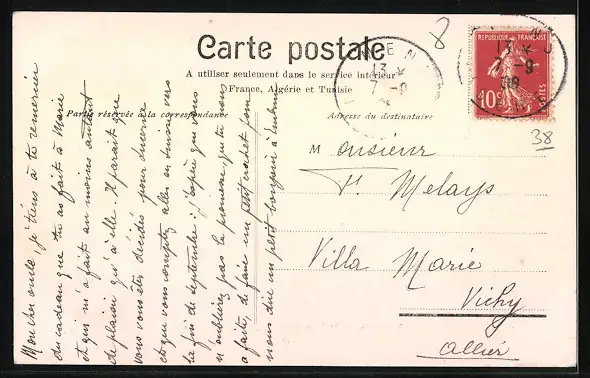 Carte postale
A utiliser seulement dans le service intérieur
France, Algérie et Tunisie
Partie réservée à la correspondance
Adresse du destinataire
REPUBLIQUE FRANÇAISE
10
POSTES
13
7 -9
08
13
7 -9
8
38
Mon cher oncle, je tiens à te remercier
du cadeau que tu as fait à Marie
et qui m'a fait au moins autant
de plaisir qu'à elle. Il paraît que
vous vous êtes décidés pour
et que vous comptez aller en Suisse vers
la fin de septembre; j'espère que vous
n'oublierez pas la promesse que tu nous
a faite, de faire un petit crochet pour
nous dire un petit bonjour à
Monsieur
Melays
Villa Marie
Vichy
Allier